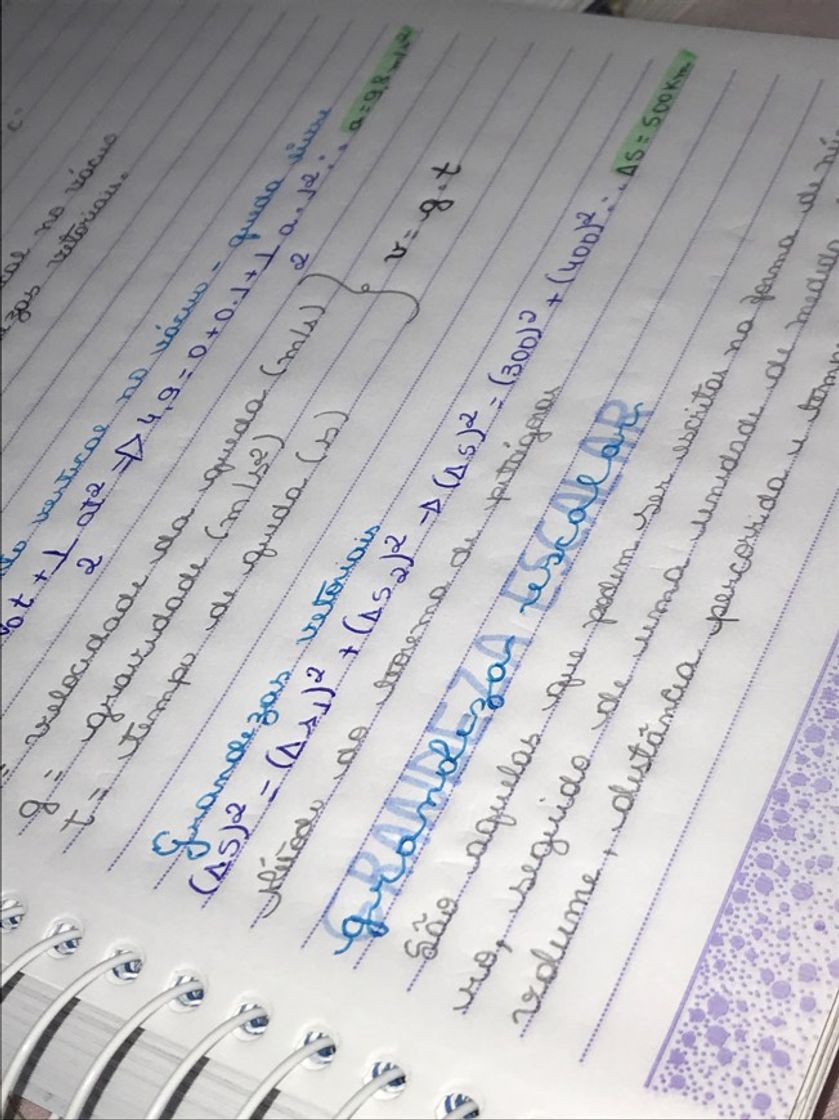 no vácuo
vetoriais.
vertical no vácuo - queda livre
0t + 1/2 at² ⇒ 4,9 = 0 + 0.1 + 1/2 a.1² ∴ a = 9,8 m/s²
velocidade da queda (m/s)
g = gravidade (m/s²)
t = tempo de queda (s)
v = g.t
Grandezas vetoriais
(ΔS)² = (ΔS1)² + (ΔS2)² → (ΔS)² = (300)² + (400)² ∴ ΔS = 500Km
Método do teorema de pitágoras
GRANDEZA ESCALAR
grandeza escalar
São aquelas que podem ser escritas na forma de nú
ro, seguido de uma unidade de medida
volume, distância percorrida e